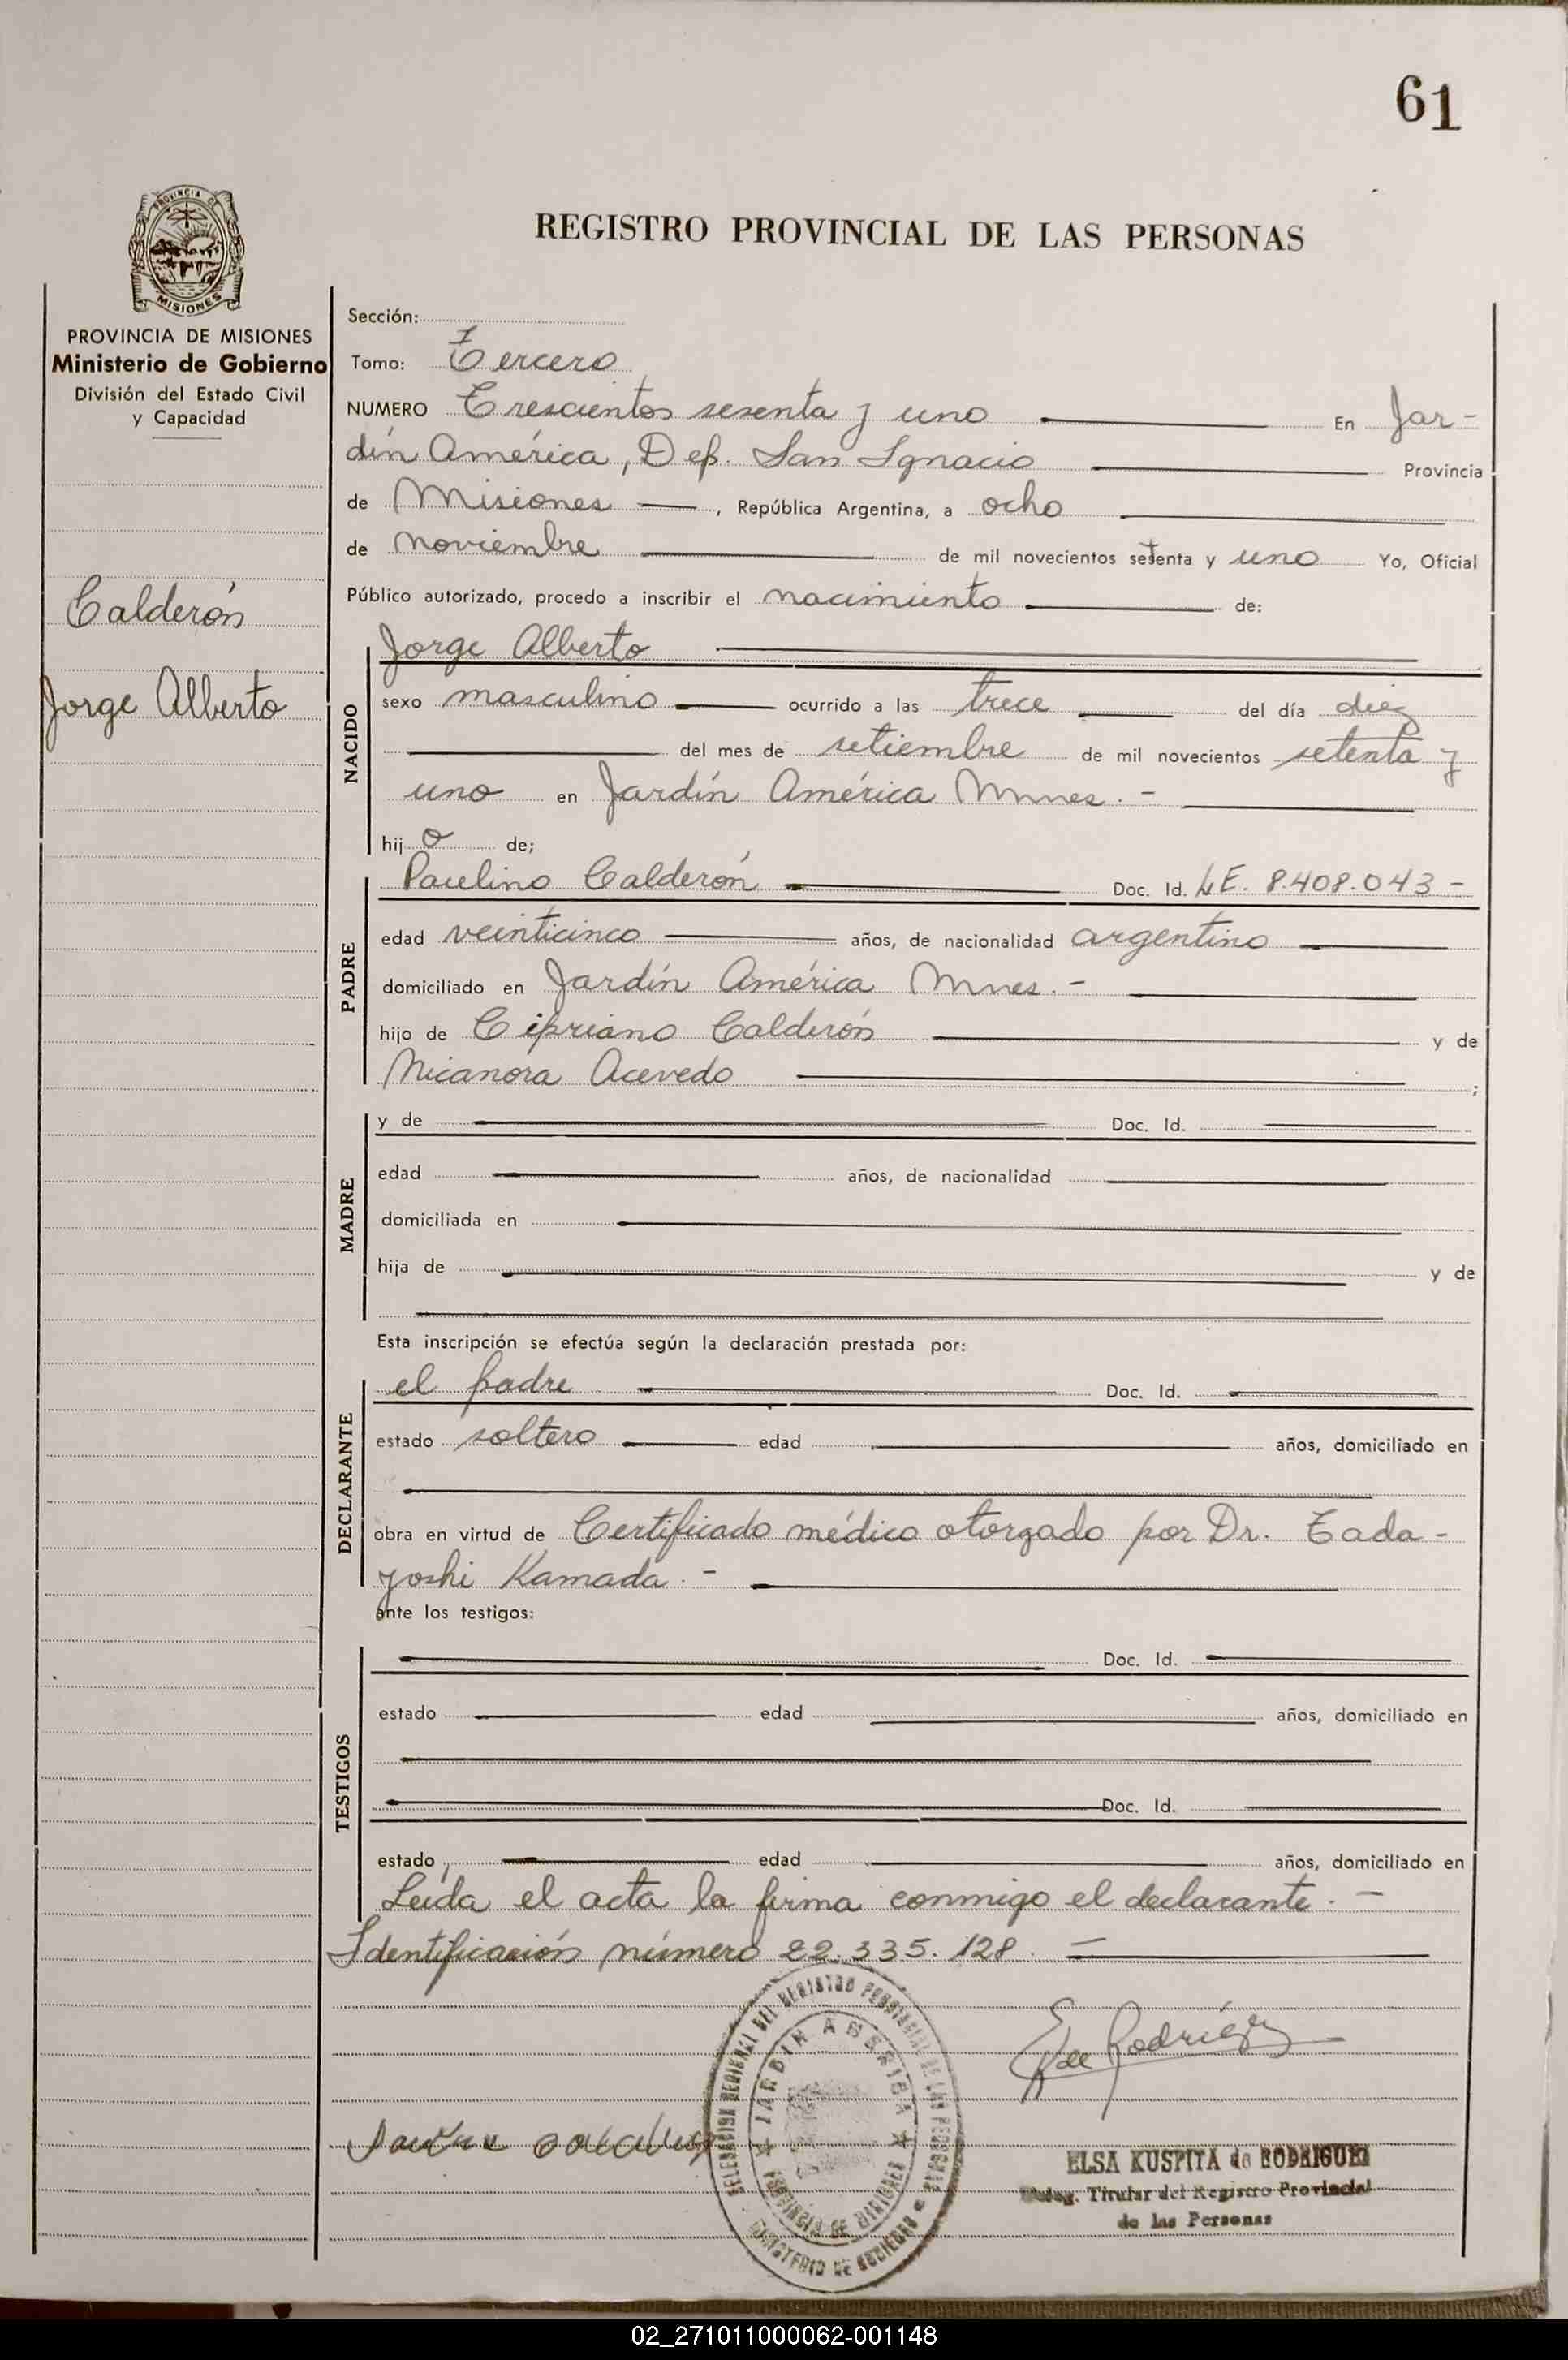 61
REGISTRO PROVINCIAL DE LAS PERSONAS
PROVINCIA DE
MISIONES
PROVINCIA DE MISIONES
Ministerio de Gobierno
División del Estado Civil
y Capacidad
Calderón
Jorge Alberto
Sección:
Tomo: Tercero
NUMERO Trescientos sesenta y uno En Jar-
dín América, Dep. San Ignacio Provincia
de Misiones, República Argentina, a ocho
de noviembre de mil novecientos setenta y uno Yo, Oficial
Público autorizado, procedo a inscribir el nacimiento de:
NACIDO
Jorge Alberto
sexo masculino ocurrido a las trece del día diez
del mes de setiembre de mil novecientos setenta y
uno en Jardín América Mnnes.-
hijo de;
PADRE
Paulino Calderón Doc. Id. LE. 8.408.043-
edad veinticinco años, de nacionalidad argentino
domiciliado en Jardín América Mnnes.-
hijo de Cipriano Calderón y de
Nicanora Acevedo ;
MADRE
y de Doc. Id.
edad años, de nacionalidad
domiciliada en
hija de y de
Esta inscripción se efectúa según la declaración prestada por:
DECLARANTE
el padre Doc. Id.
estado soltero edad años, domiciliado en
obra en virtud de Certificado médico otorgado por Dr. Tada-
yoshi Kamada.-
ante los testigos:
TESTIGOS
Doc. Id.
estado edad años, domiciliado en
Doc. Id.
estado edad años, domiciliado en
Leída el acta la firma conmigo el declarante.-
Identificación número 22.335.128.-
E K de Rodríguez
DELEGACION REGIONAL DEL REGISTRO PROVINCIAL DE LAS PERSONAS
JARDIN AMERICA
PROVINCIA DE MISIONES
MINISTERIO DE GOBIERNO
ELSA KUSPITA de RODRIGUEZ
Deleg. Titular del Registro Provincial
de las Personas
02_271011000062-001148